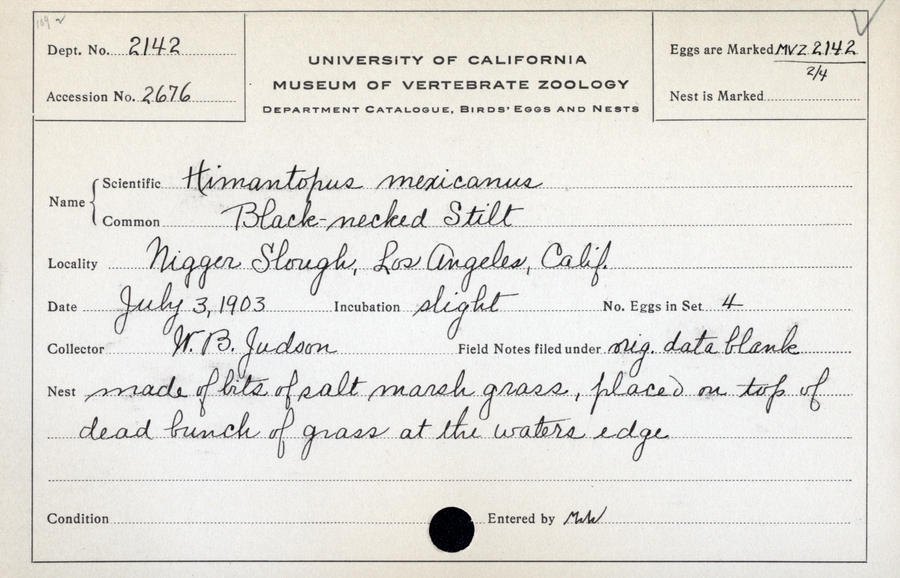 Dept. No. 2142
Accession No. 2676
UNIVERSITY OF CALIFORNIA
MUSEUM OF VERTEBRATE ZOOLOGY
DEPARTMENT CATALOGUE, BIRDS' EGGS AND NESTS
Eggs are Marked MVZ 2142
2/4
Nest is Marked
Name { Scientific Himantopus mexicanus
Common Black-necked Stilt
Locality Nigger Slough, Los Angeles, Calif.
Date July 3, 1903 Incubation slight No. Eggs in Set 4
Collector W. B. Judson Field Notes filed under orig. data blank
Nest made of bits of salt marsh grass, placed on top of
dead bunch of grass at the waters edge
Condition Entered by